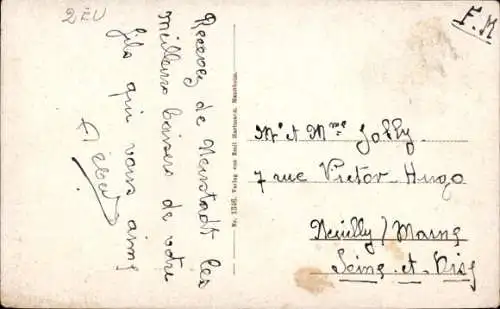 2 EU
F.M
Recevez de Neustadt les
meilleurs baisers de votre
fils qui vous aime
No. 1346. Verlag von Emil Hartmann, Mannheim.
Mr et Mme Jolly.
7 rue Victor-Hugo
Neuilly / Marne
Seine-et-Oise